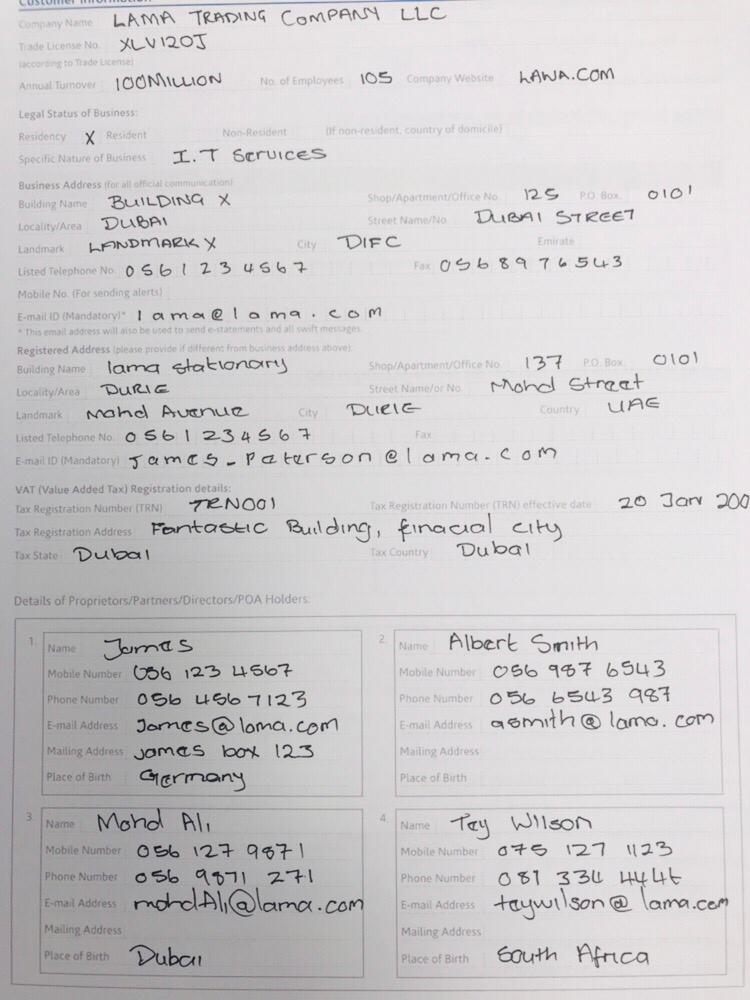 Customer Information
Company Name LAMA TRADING COMPANY LLC
Trade License No. XLV120J
(according to Trade License)
Annual Turnover 100MILLION No. of Employees 105 Company Website LAWA.COM
Legal Status of Business:
Residency X Resident Non-Resident (If non-resident, country of domicile)
Specific Nature of Business I.T Services
Business Address (for all official communication)
Building Name BUILDING X Shop/Apartment/Office No. 125 P.O. Box. 0101
Locality/Area DUBAI Street Name/No. DUBAI STREET
Landmark LANDMARK X City DIFC Emirate
Listed Telephone No. 0561234567 Fax 0568976543
Mobile No. (For sending alerts)
E-mail ID (Mandatory)* lama@lama.com
* This email address will also be used to send e-statements and all swift messages.
Registered Address (please provide if different from business address above):
Building Name lama stationary Shop/Apartment/Office No. 137 P.O. Box. 0101
Locality/Area DURIE Street Name/or No. Mohd Street
Landmark Mohd Avenue City DURIE Country UAE
Listed Telephone No. 0561234567 Fax
E-mail ID (Mandatory) James_Paterson@lama.com
VAT (Value Added Tax) Registration details:
Tax Registration Number (TRN) TRN001 Tax Registration Number (TRN) effective date 20 Jan 200
Tax Registration Address Fantastic Building, finacial city
Tax State Dubai Tax Country Dubai
Details of Proprietors/Partners/Directors/POA Holders:
1. Name James
Mobile Number 056 123 4567
Phone Number 056 456 7123
E-mail Address James@lama.com
Mailing Address james box 123
Place of Birth Germany
2. Name Albert Smith
Mobile Number 056 987 6543
Phone Number 056 6543 987
E-mail Address asmith@lama.com
Mailing Address
Place of Birth
3. Name Mohd Ali
Mobile Number 056 127 9871
Phone Number 056 9871 271
E-mail Address mohdAli@lama.com
Mailing Address
Place of Birth Dubai
4. Name Tay Wilson
Mobile Number 075 127 1123
Phone Number 081 334 4445
E-mail Address taywilson@lama.com
Mailing Address
Place of Birth South Africa